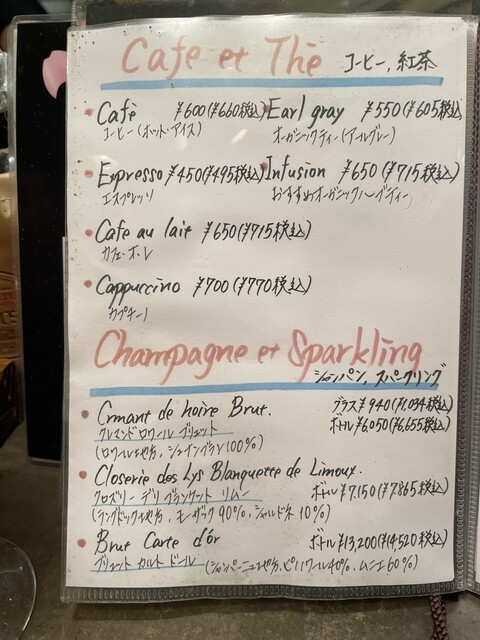 Cafe et Thè コーヒー, 紅茶
Cafè ¥600(¥660税込) Earl gray ¥550(¥605税込)
コーヒー(ホット・アイス) オーガニックティー(アールグレー)
Espresso ¥450(¥495税込) Infusion ¥650(¥715税込)
エスプレッソ おすすめオーガニックハーブティー
Cafe au lait ¥650(¥715税込)
カフェ・オ・レ
Cappuccino ¥700(¥770税込)
カプチーノ
Champagne et Sparkling
シャンパン, スパークリング
Crmant de hoire Brut. グラス ¥940(¥1,034税込)
クレマンドロワール ブリュット ボトル ¥6,050(¥6,655税込)
(ロワール地方, シュナンブラン100%)
Closerie des Lys Blanquette de Limoux.
クロズリー デリ ブランケット リムー ボトル ¥7,150(¥7,865税込)
(ラングドック地方, モーザック90%, シャルドネ10%)
Brut Carte d'or ボトル ¥13,200(¥14,520税込)
ブリュット カルト ドール (シャンパーニュ地方, ピノノワール40%, ムニエ60%)